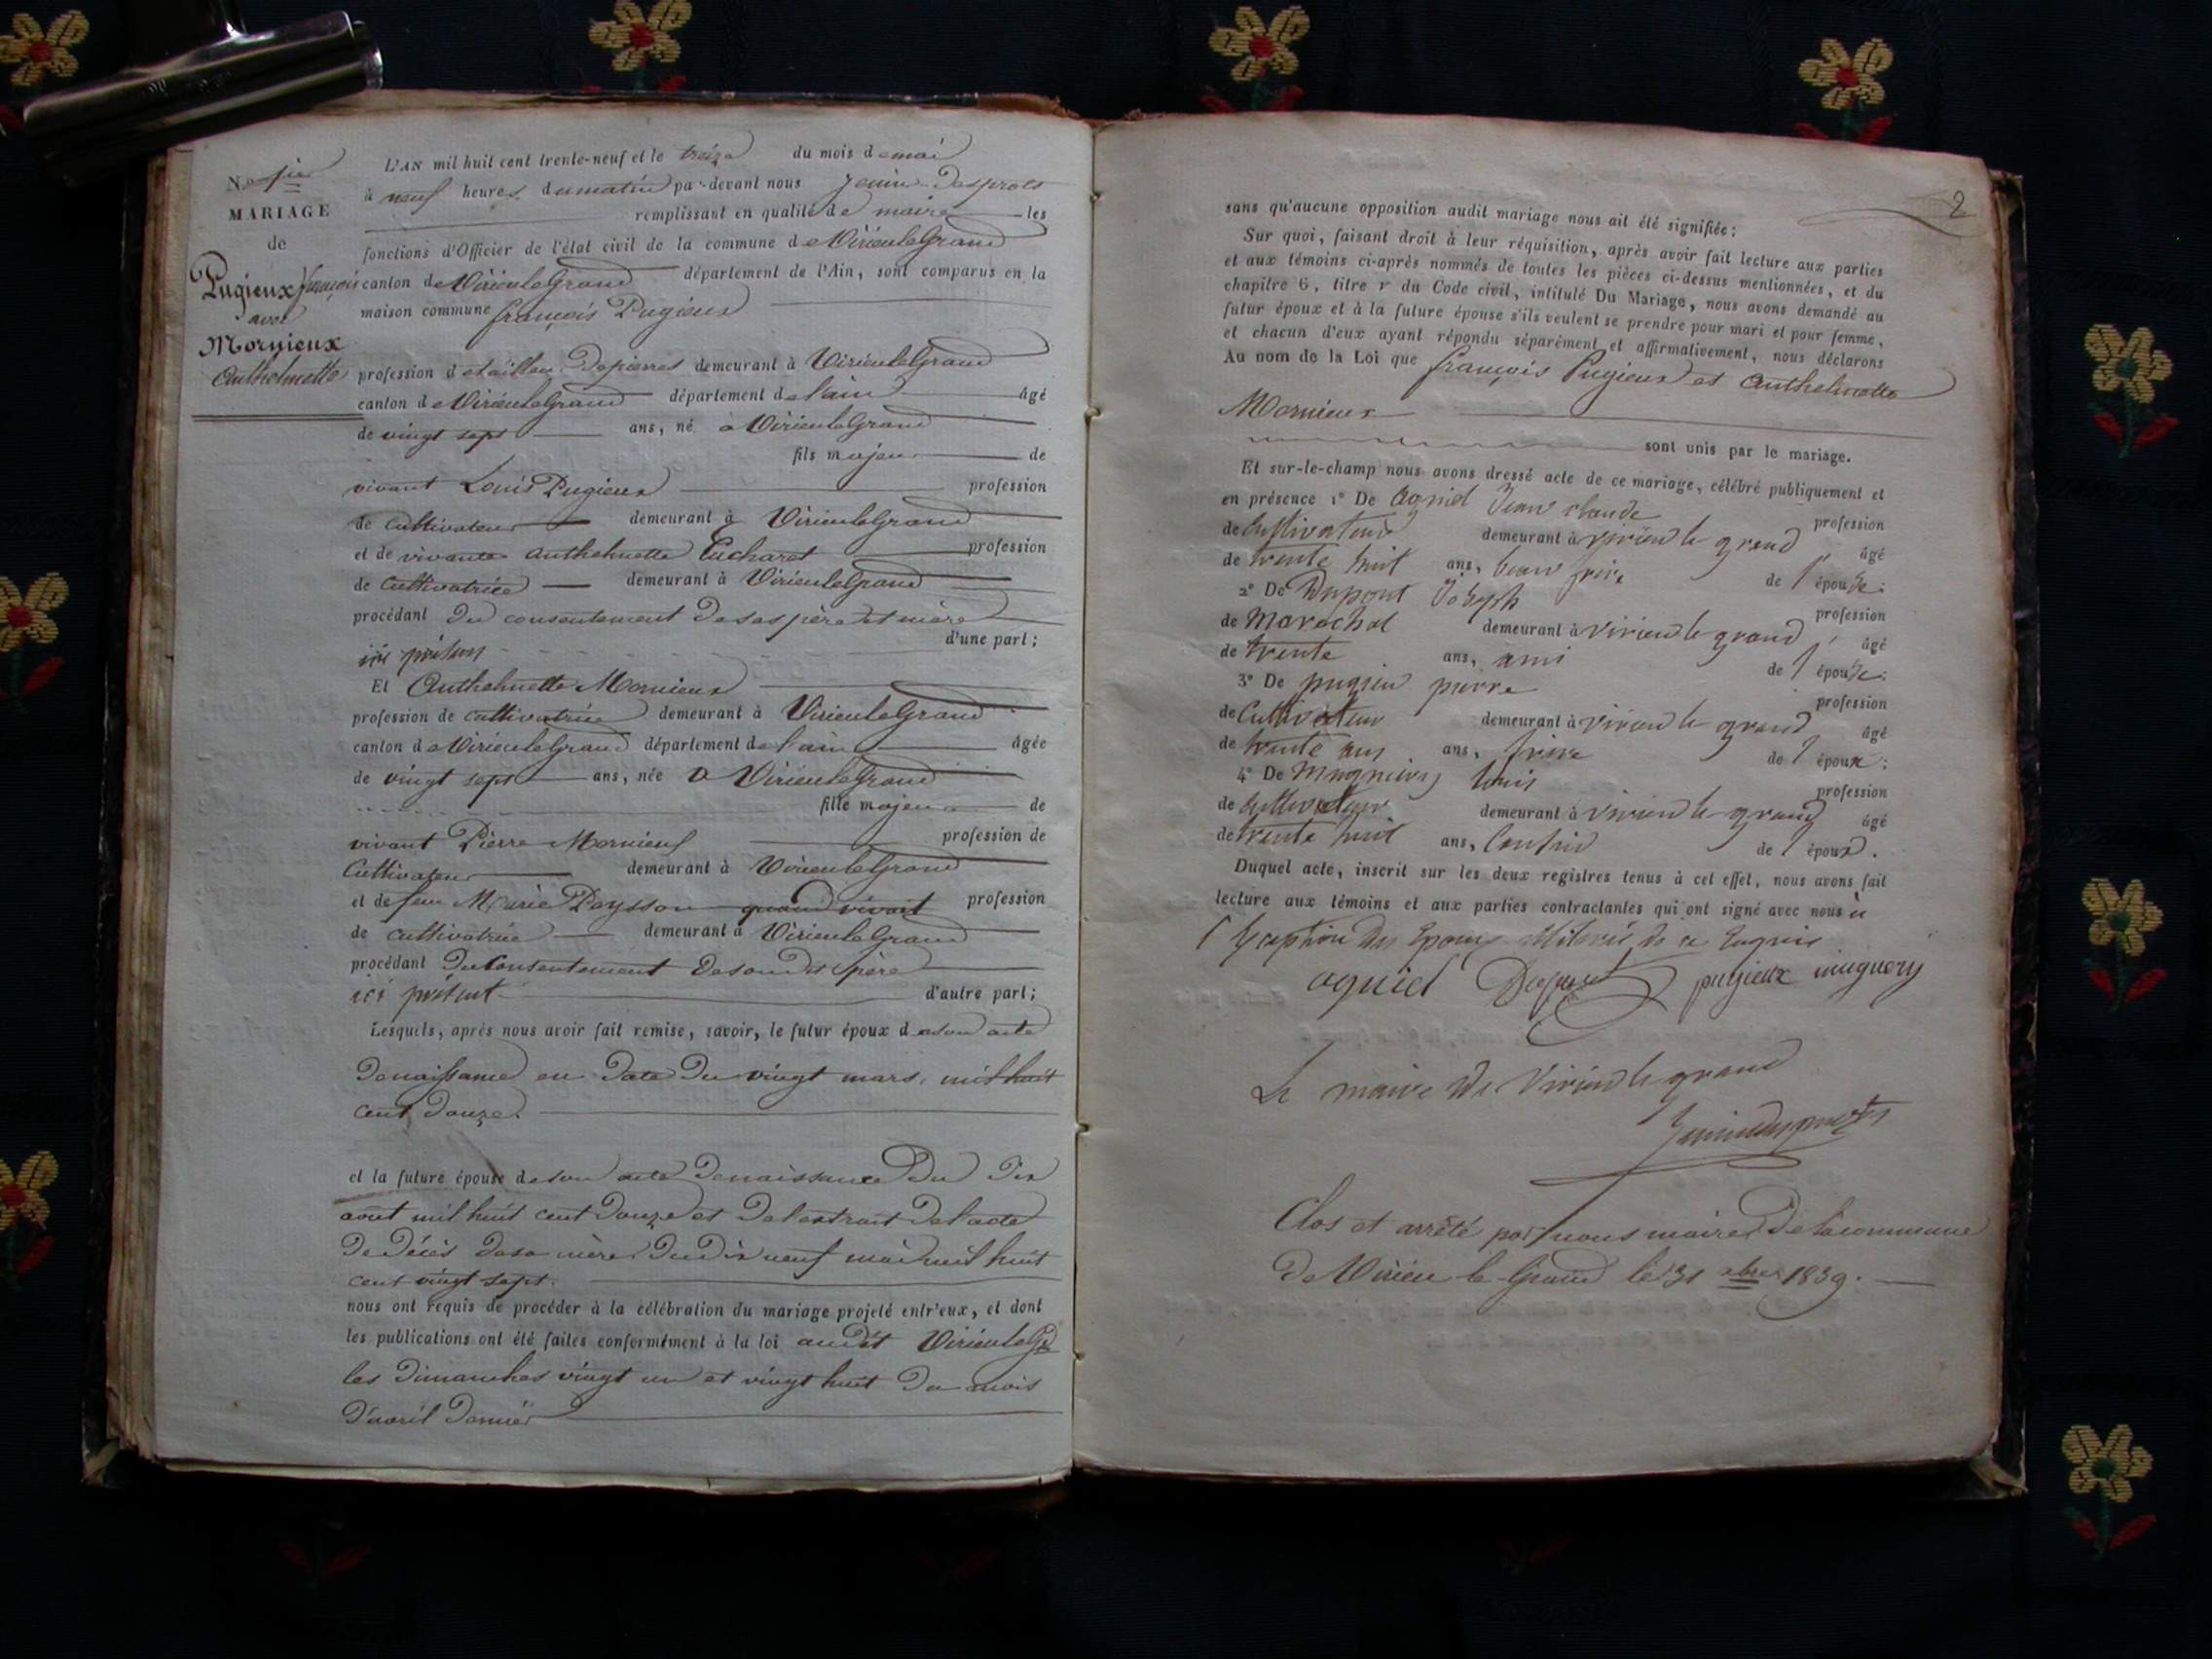 MARIAGE
de
Pugieux françois
avec
Mornieux
Anthelmette
L'AN mil huit cent trente-neuf et le treize du mois de mai
à neuf heures du matin par-devant nous Jenin Desprots
remplissant en qualité de maire les
fonctions d'Officier de l'état civil de la commune de Virieu le Grand
canton de Virieu le Grand département de l'Ain, sont comparus en la
maison commune françois Pugieux
profession de tailleur de pierres demeurant à Virieu le Grand
canton de Virieu le Grand département de l'ain âgé
de vingt sept ans, né à Virieu le Grand
fils majeur de
vivant Louis Pugieux profession
de cultivateur demeurant à Virieu le Grand
et de vivante Anthelmette Eucharet profession
de cultivatrice demeurant à Virieu le Grand
procédant du consentement de ses père et mère
ici présens d'une part ;
Et Anthelmette Mornieux
profession de cultivatrice demeurant à Virieu le Grand
canton de Virieu le Grand département de l'ain âgée
de vingt sept ans, née à Virieu le Grand
fille majeure de
vivant Pierre Mornieux profession de
Cultivateur demeurant à Virieu le Grand
et de feue Marie Paysson quand vivait profession
de cultivatrice demeurant à Virieu le Grand
procédant du Consentement de son dit père
ici présent d'autre part ;
Lesquels, après nous avoir fait remise, savoir, le futur époux de son acte
de naissance en date du vingt mars, mil huit
cent douze.
et la future épouse de son acte de naissance du dix
août mil huit cent douze et de l'extrait de l'acte
de décès de sa mère du dix neuf mai mil huit
cent vingt sept.
nous ont requis de procéder à la célébration du mariage projeté entr'eux, et dont
les publications ont été faites conformément à la loi audit Virieu le Gd
les dimanches vingt un et vingt huit du mois
d'avril dernier
2
sans qu'aucune opposition audit mariage nous ait été signifiée ;
Sur quoi, faisant droit à leur réquisition, après avoir fait lecture aux parties
et aux témoins ci-après nommés de toutes les pièces ci-dessus mentionnées, et du
chapitre 6, titre v du Code civil, intitulé Du Mariage, nous avons demandé au
futur époux et à la future épouse s'ils veulent se prendre pour mari et pour femme,
et chacun d'eux ayant répondu séparément et affirmativement, nous déclarons
Au nom de la Loi que françois Pugieux et Anthelmette
Mornieux
sont unis par le mariage.
Et sur-le-champ nous avons dressé acte de ce mariage, célébré publiquement et
en présence 1° De Aguiel Jean claude profession
de Cultivateur demeurant à virieu le grand âgé
de trente huit ans, beau frère de l'épouse ;
2° De Dupont Joseph profession
de Marechal demeurant à virieu le grand âgé
de trente ans, ami de l'épouse ;
3° De pugieu pierre profession
de Cultivateur demeurant à virieu le grand âgé
de trente ans ans, frère de l'époux ;
4° De louis profession
de Cultivateur demeurant à virieu le grand âgé
de trente huit ans, Cousin de l'époux.
Duquel acte, inscrit sur les deux registres tenus à cet effet, nous avons fait
lecture aux témoins et aux parties contractantes qui ont signé avec nous à
l'exception des époux Illiterés de ce Enquis
aguiel Dupont pugieux muguery
Le maire de Virieu le grand
Jenin Desprots
Clos et arrêté par nous maire de la commune
de Virieu le Grand le 31 xbre 1839.